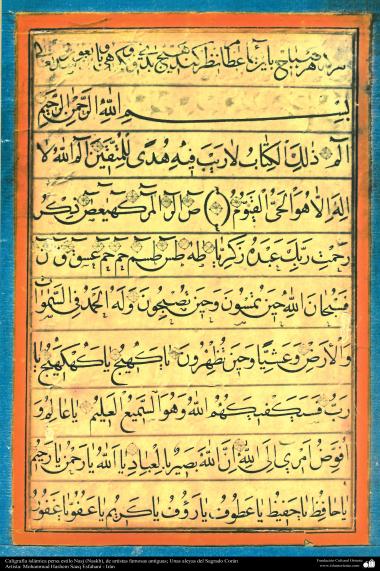 بسم الله الرحمن الرحيم
الم ذلك الكتاب لا ريب فيه هدى للمتقين الم الله لا
اله الا هو الحي القيوم ص الر المر كهيعص ذكر
رحمت ربك عبده زكريا طه طس طسم حم حم عسق و ن
فسبحان الله حين تمسون وحين تصبحون وله الحمد في السموات
والارض وعشيا وحين تظهرون يا
رب فسيكفيكهم الله وهو السميع العليم يا عالم و
افوض امري الى الله ان الله بصير بالعباد يا الله يا رحمن يا رحيم
يا حافظ يا حفيظ يا عطوف يا رؤف يا كريم يا عفو يا عفو يا عفو
Caligrafía islámica persa estilo Nasj (Naskh), de artistas famosos antiguos; Unas aleyas del Sagrado Corán
Artista: Mohammad Hashem Saeq Esfahani - Irán
Fundación Cultural Oriente